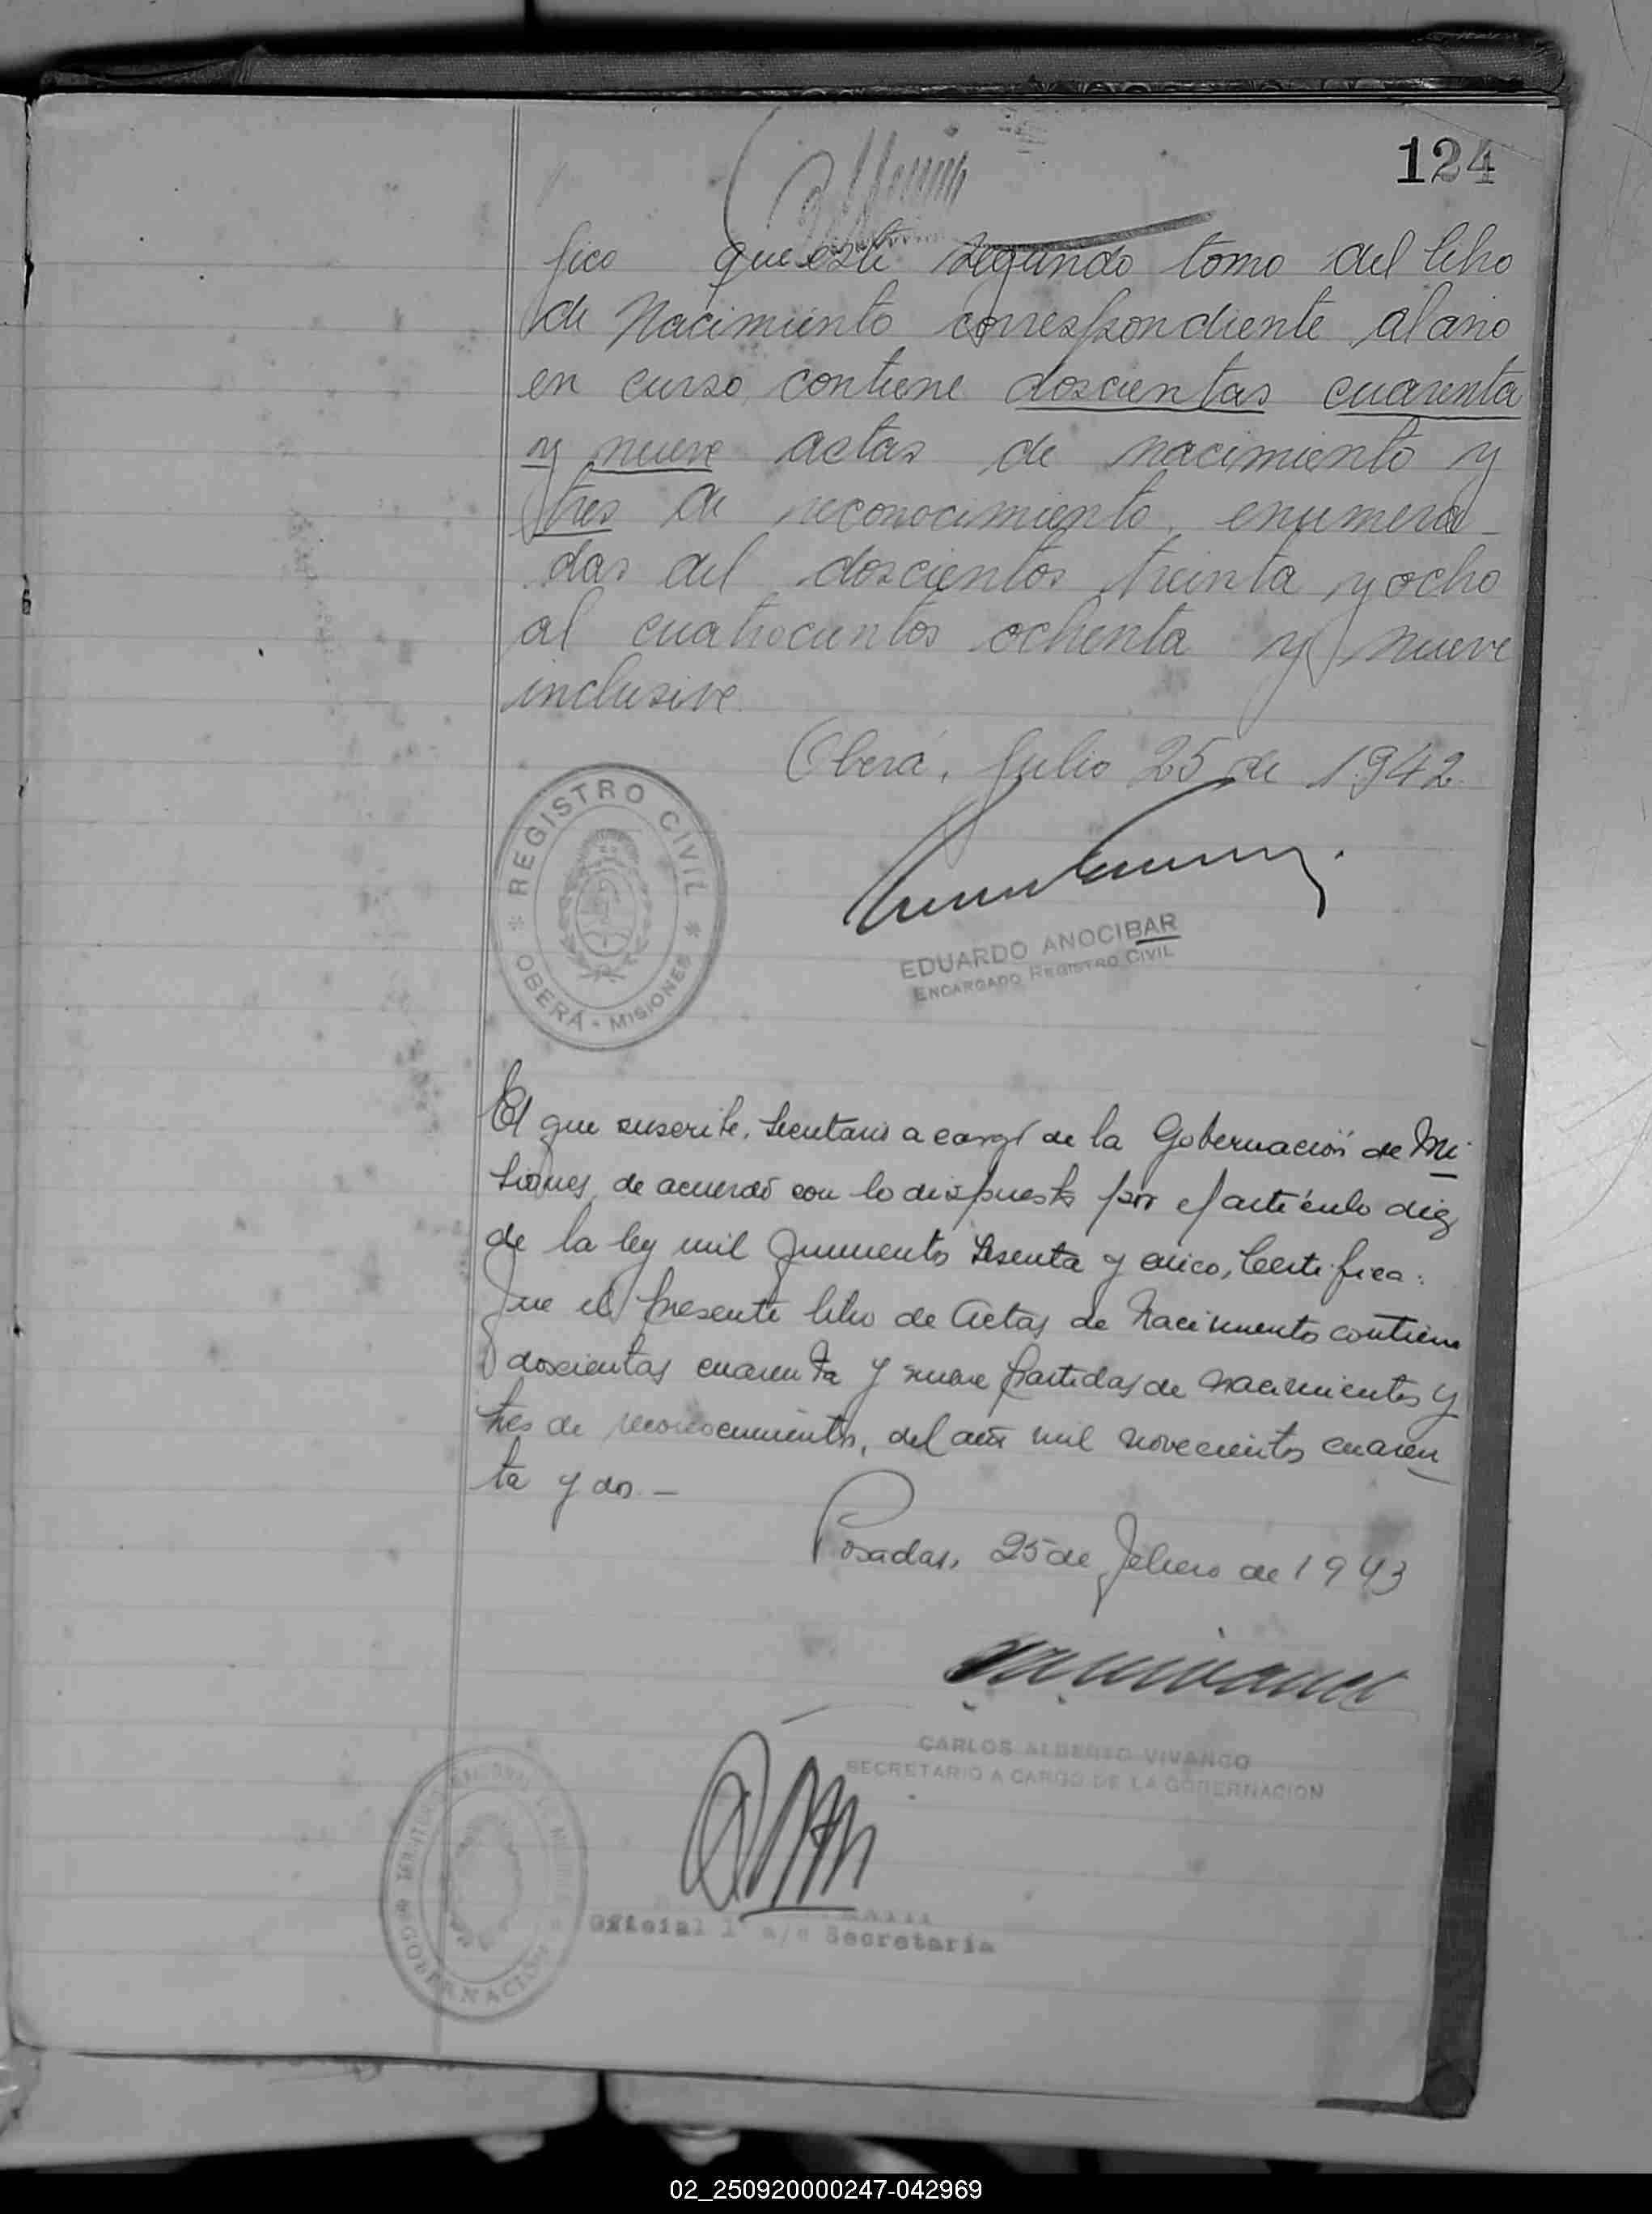 124
fico que este segundo tomo del libro
de Nacimiento correspondiente al año
en curso, contiene doscientas cuarenta
y nueve actas de nacimiento y
tres de reconocimiento, enumera-
das del doscientos treinta y ocho
al cuatrocientos ochenta y nueve
inclusive.
Oberá, Julio 25 de 1942
REGISTRO CIVIL
OBERÁ - MISIONES
EDUARDO ANOCIBAR
ENCARGADO REGISTRO CIVIL
El que suscribe, Secretario a cargo de la Gobernación de Mi
siones, de acuerdo con lo dispuesto por el artículo diez
de la ley mil quinientos sesenta y cinco, Certifica:
Que el presente libro de Actas de Nacimientos contiene
doscientas cuarenta y nueve partidas de nacimientos y
tres de reconocimientos, del año mil novecientos cuaren
ta y dos -
Posadas, 25 de Febrero de 1943
CARLOS ALBERTO VIVANCO
SECRETARIO A CARGO DE LA GOBERNACION
GOBERNACION
Oficial 1º a/c Secretaría
02_250920000247-042969